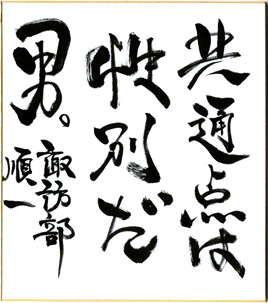 共通点は
性別だ
男。
諏訪部
順一